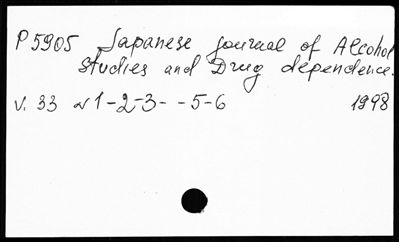 P5905 Japanese journal of Alcohol
studies and Drug dependence.
v. 33 N 1-2-3- -5-6 1998